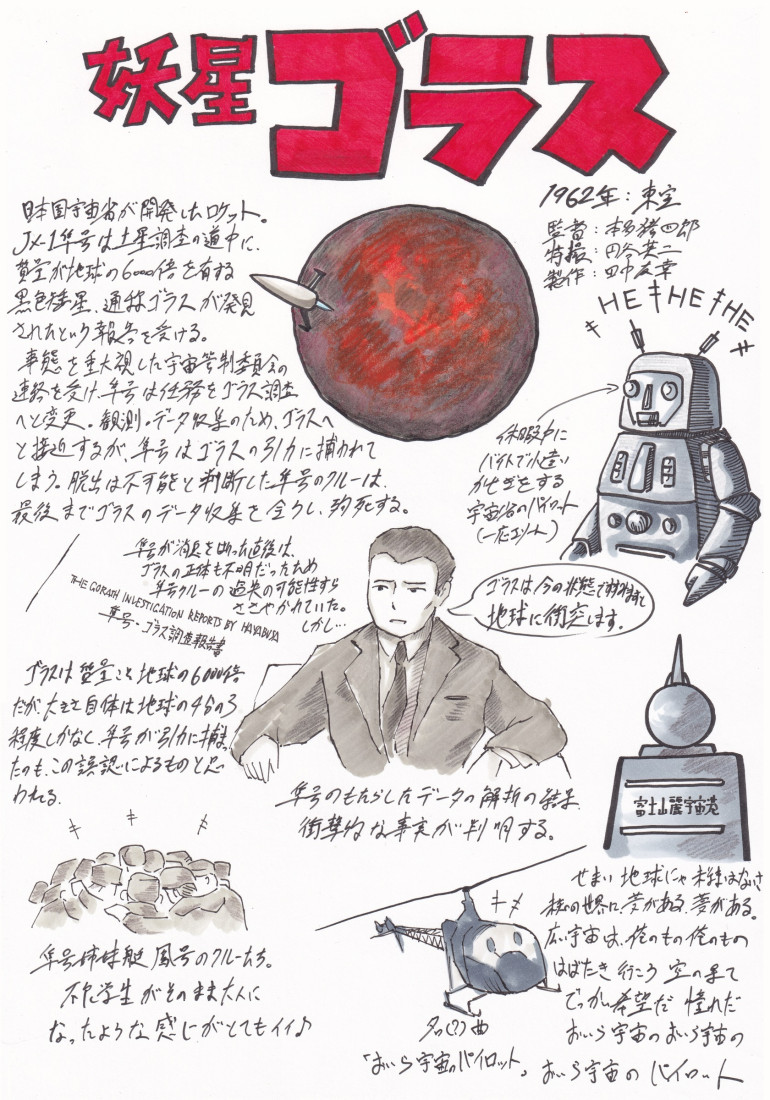 妖星ゴラス
1962年：東宝
監督：本多猪四郎
特撮：円谷英二
製作：田中友幸
日本国宇宙省が開発したロケット。
JX-1隼号は土星調査の道中に、
質量が地球の6000倍を有する
黒色彗星、通称ゴラスが発見
されたという報告を受ける。
事態を重大視した宇宙管制委員会の
連絡を受け、隼号は任務をゴラス調査
へと変更。観測・データ収集のため、ゴラスへ
と接近するが、隼号はゴラスの引力に捕われて
しまう。脱出は不可能と判断した隼号のクルーは、
最後までゴラスのデータ収集を全うし、殉死する。
HEキHEキHE
休暇中に
バイトで小遣い
かせぎをする
宇宙省のパイロット
(一応エリート)
隼号が消息を断った直後は、
ゴラスの正体も不明だったため
隼号クルーの過失の可能性すら
ささやかれていた。
しかし…
THE GORATH INVESTIGATION REPORTS BY HAYABUSA
隼号・ゴラス調査報告書
ゴラスは今の状態で
地球に衝突します。
ゴラスは質量こそ地球の6000倍
だが、大きさ自体は地球の4分の3
程度しかなく、隼号が引力に捕まっ
たのも、この誤認によるものと思
われる。
隼号のもたらしたデータの解析の結果、
衝撃的な事実が判明する。
富士山麓宇宙港
隼号姉妹艇 鳳号のクルーたち。
不良学生がそのまま大人に
なったような感じがとてもイイ♪
せまい地球にゃ未練はないさ
未知の世界に夢がある、夢がある。
広い宇宙は、俺のもの俺のもの
はばたき行こう 空の果て
でっかい希望だ 憧れだ
おいら宇宙の おいら宇宙の
おいら宇宙の パイロット
(?)曲
「おいら宇宙のパイロット」